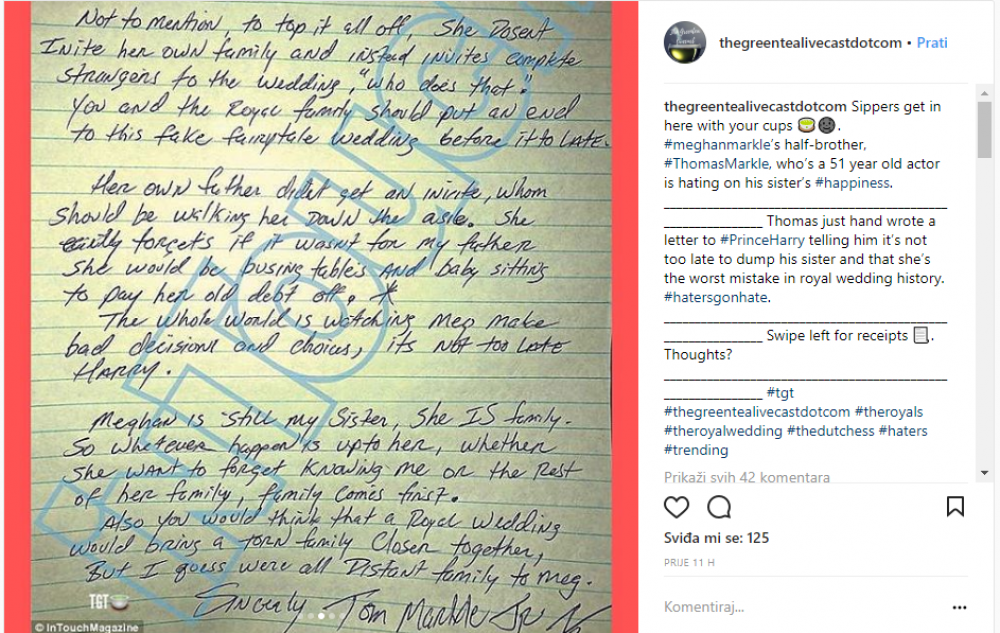 Not to mention, to top it all off, She Dosent
Inite her own family and instead invites complete
strangers to the wedding, "who does that".
You and the Royal family should put an end
to this fake fairytale wedding before it to LATE.
Her own father didnt get an inivte, whom
should be walking her Down the asile. She
forgets if it wasnt for my father
She would be busing tables AND baby sitting
to pay her old debt off. *
The Whole World is watching Meg make
bad decisions and choices, its NOT too LATE
HARRY.
Meghan is still my Sister, She IS family.
So whatever happen is upto her, whether
She WANT to forget Knowing me or the Rest
of her family, family comes first.
Also you would think that a Royal Wedding
would bring a TORN family Closer together,
But I guess were all Distant family to Meg.
Sincerly Tom Markle Jr
TGT
© InTouchMagazine
thegreentealivecastdotcom • Prati
thegreentealivecastdotcom Sippers get in
here with your cups 🍵🌚.
#meghanmarkle's half-brother,
#ThomasMarkle, who's a 51 year old actor
is hating on his sister's #happiness.
Thomas just hand wrote a
letter to #PrinceHarry telling him it's not
too late to dump his sister and that she's
the worst mistake in royal wedding history.
#hatersgonhate.
Swipe left for receipts 🧾.
Thoughts?
#tgt
#thegreentealivecastdotcom #theroyals
#theroyalwedding #thedutchess #haters
#trending
Prikaži svih 42 komentara
Sviđa mi se: 125
PRIJE 11 H
Komentiraj...